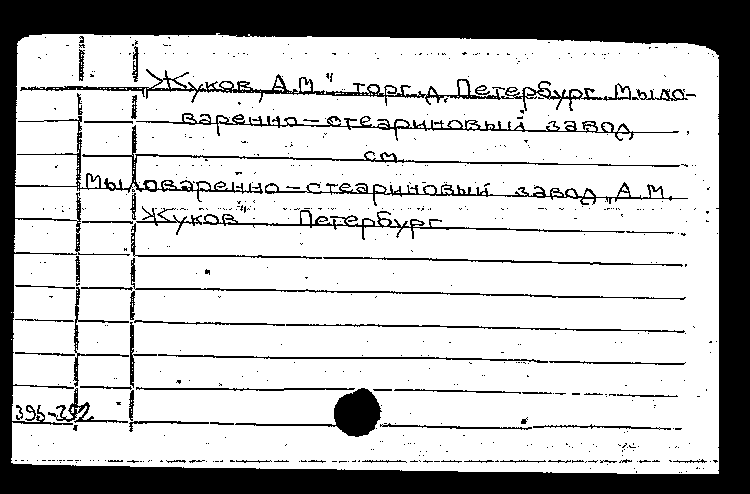 „Жуков, А.М." торг. д. Петербург. Мыло-
варенно-стеариновый завод
см.
Мыловаренно-стеариновый завод „А.М.
Жуков" Петербург.